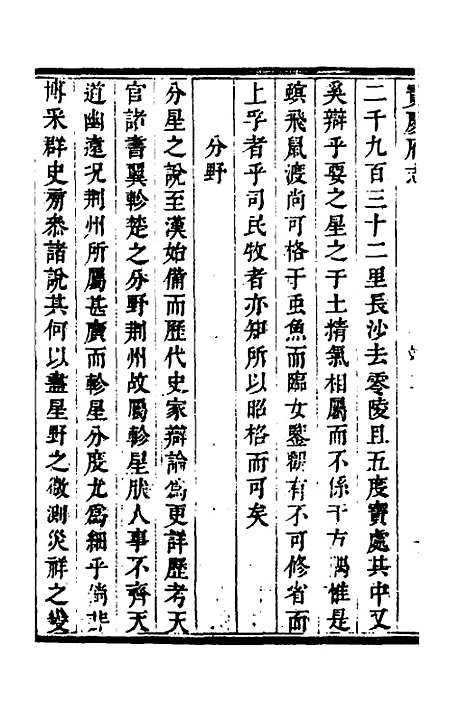 寶慶府志
二千九百三十二里長沙去零陵且五度寶處其中又
奚辯乎要之星之于土精氣相屬而不係于方隅惟是
螟飛鼠渡尚可格于虫魚而臨女鑒觀有不可修省而
上乎者乎司民牧者亦知所以昭格而可矣
分野
分星之說至漢始備而歷代史家辯論爲更詳歷考天
官諸書翼軫楚之分野荆州故屬軫星肰人事不齊天
道幽遠況荆州所屬甚廣而軫星分度尤爲細乎倘非
博采群史旁悉諸說其何以盡星野之徵測災祥之變